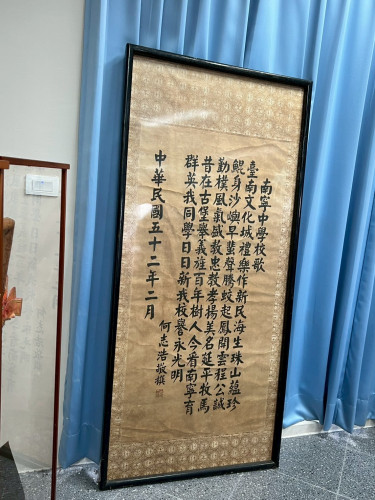 南寧中學校歌
臺南文化城禮樂作新民海生珠山蘊珍
鯤身沙嶼早蜚聲騰蛟起鳳開雲程公誠
勤樸風氣盛教忠教孝揚美名延平牧馬
昔在古堡舉義旌百年樹人今看南寧育
群英我同學日日新我校譽永光明
中華民國五十二年二月
何志浩敬撰